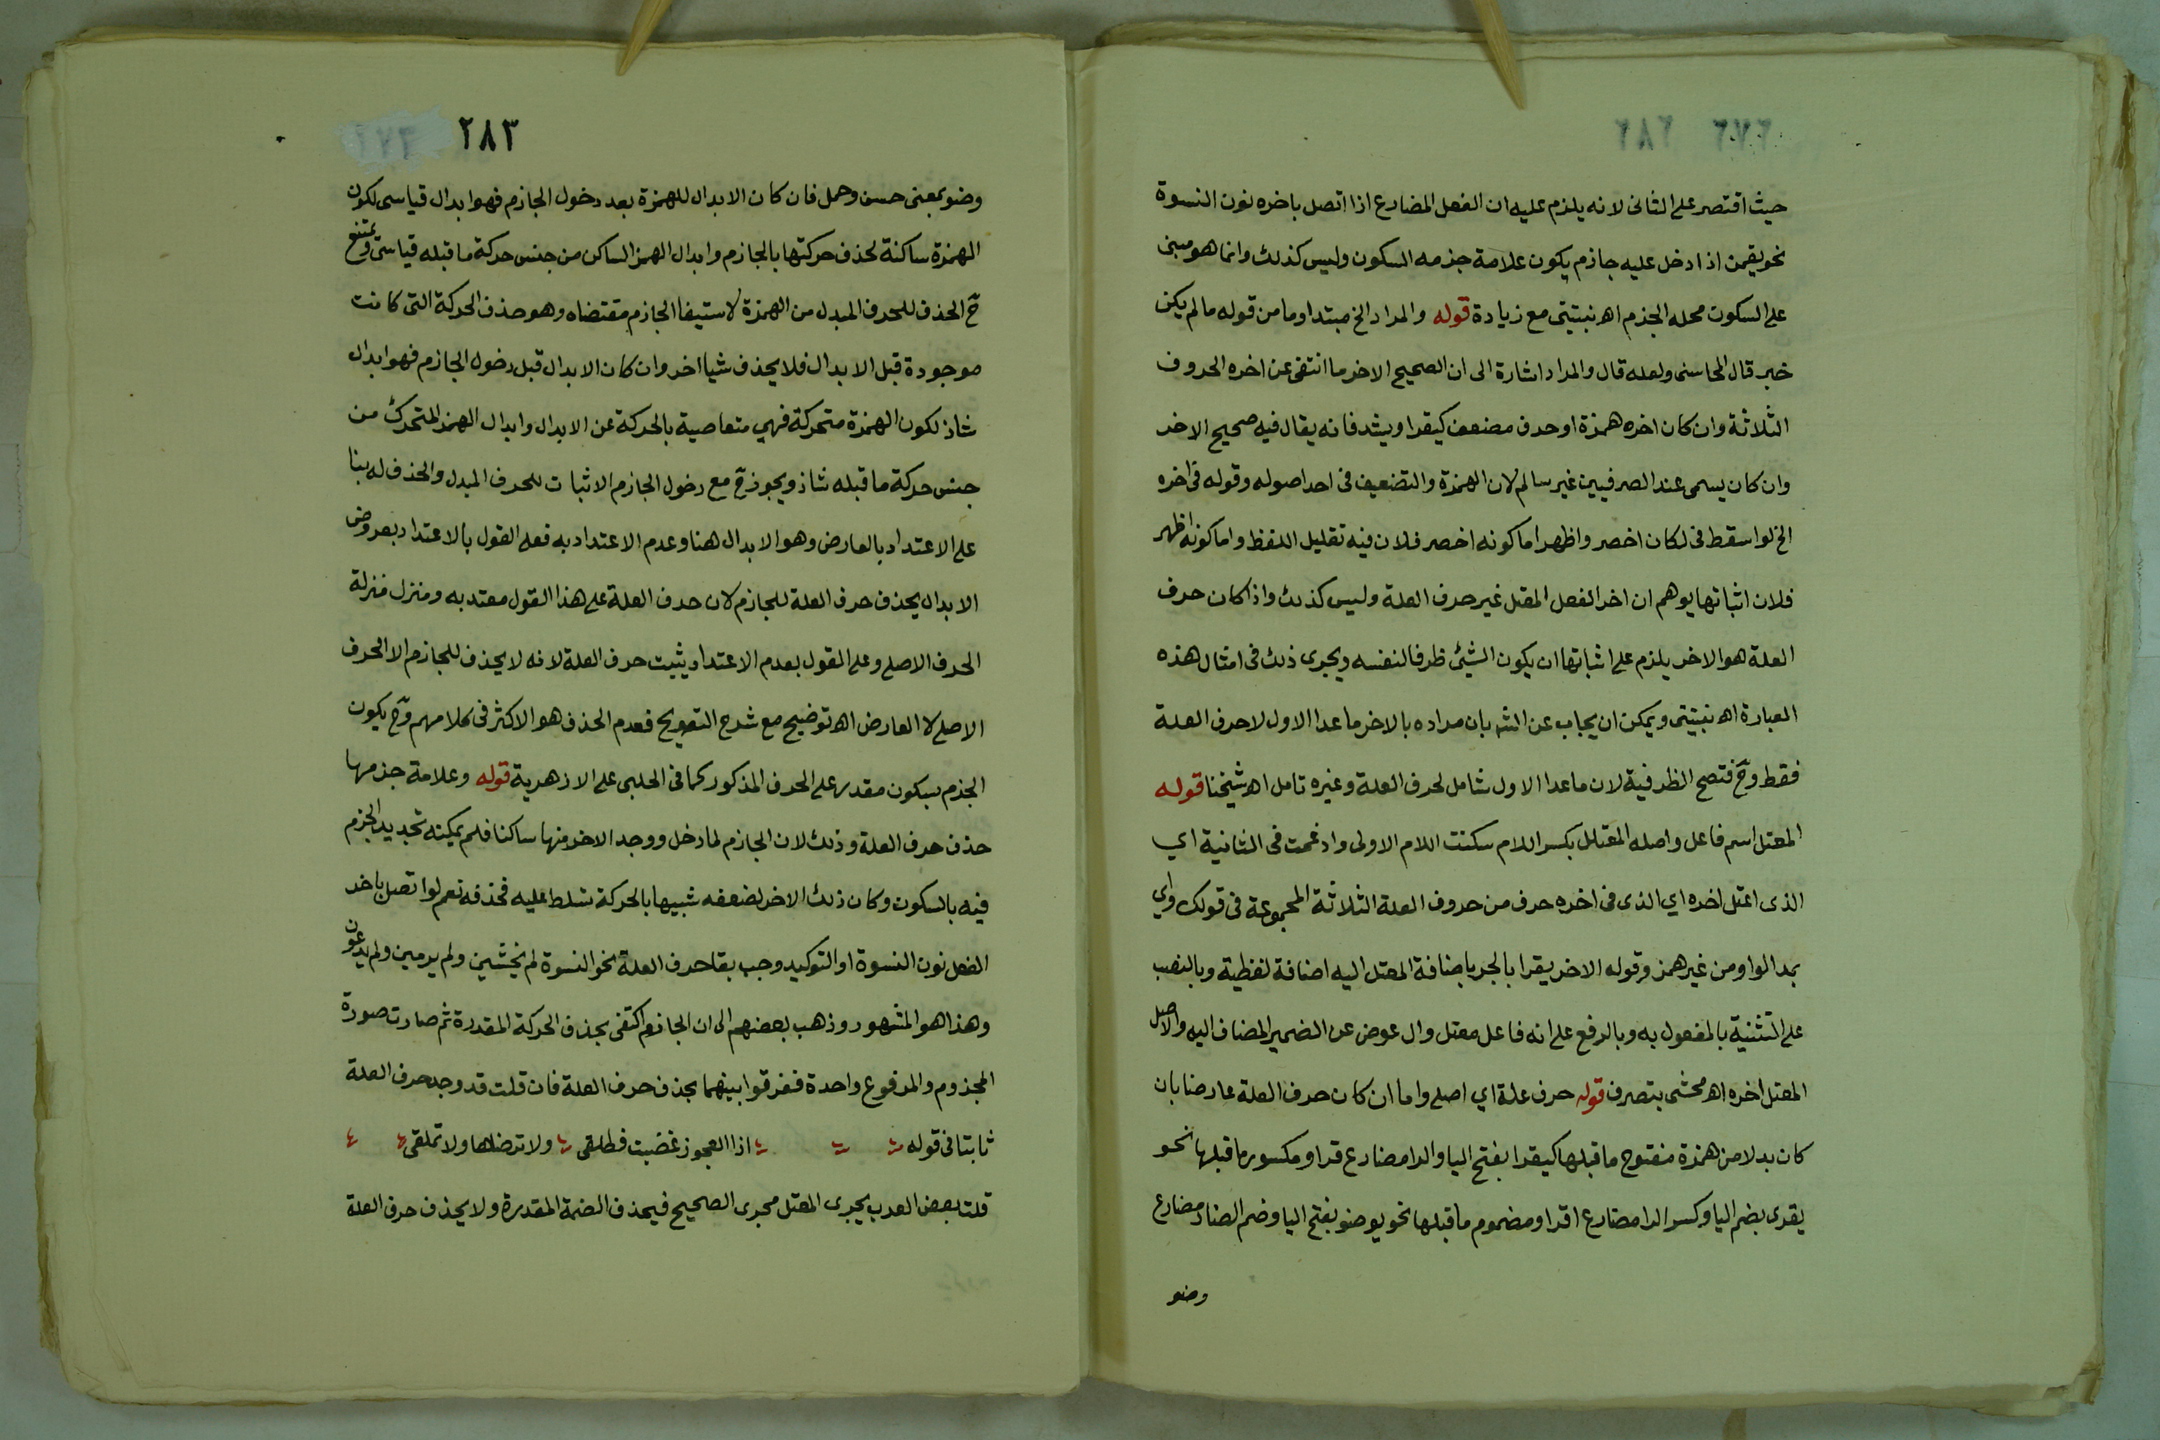 حيث اقتصر على الثانى لانه يلزم عليه ان الفعل المضارع اذا اتصل باخره نون النسوة
نحو يقمن اذا دخل عليه جازم يكون علامة جزمه السكون وليس كذلك وانما هو مبنى
على السكون محله الجزم اه نبتيتى مع زيادة قوله والمراد الخ مبتدا وما من قوله ما لم يكن
خبر قال المحاسنى ولعله قال والمراد اشارة الى ان الصحيح الاخر ما انتفى عن اخره الحروف
الثلاثة وان كان اخره همزة او حرف مضعف كيقرا ويشد فانه يقال فيه صحيح الاخر
وان كان يسمى عند الصرفيين غير سالم لان الهمزة والتضعيف فى احد اصوله وقوله فى اخره
الخ لو اسقط فى لكان اخصر واظهر اما كونه اخصر فلان فيه تقليل اللفظ واما كونه اظهر
فلان اثباتها يوهم ان اخر الفعل المعتل غير حرف العلة وليس كذلك واذا كان حرف
العلة هو الاخر يلزم على اثباتها ان يكون الشئ ظرفا لنفسه ويجرى ذلك فى امثال هذه
العبارة اه نبتيتى ويمكن ان يجاب عن الش بان مراده بالاخر ما عدا الاول لا حرف العلة
فقط وح فتصح الظرفية لان ما عدا الاول شامل لحرف العلة وغيره تامل اه شيخنا قوله
المعتل اسم فاعل واصله المعتلل بكسر اللام سكنت اللام الاولى وادغمت فى الثانية اي
الذى اعتل اخره اي الذى فى اخره حرف من حروف العلة الثلاثة المجموعة فى قولك واي
بمد الواو من غير همز وقوله الاخر يقرا بالجر باضافة المعتل اليه اضافة لفظية وبالنصب
على التثنية بالمفعول به وبالرفع على انه فاعل معتل وال عوض عن الضمير المضاف اليه والاصل
المعتل اخره اه محشى بتصرف قوله حرف علة اي اصلى واما ان كان حرف العلة عارضا بان
كان بدلا من همزة مفتوح ما قبلها كيقرا بفتح اليا والرا مضارع قرا او مكسور ما قبلها نحو
يقرى بضم اليا وكسر الرا مضارع اقرا او مضموم ما قبلها نحو يوضو بفتح اليا وضم الضاد مضارع
وضو
٢٨٣
وضو بمعنى حسن وجمل فان كان الابدال للهمزة بعد دخول الجازم فهو ابدال قياسى لكون
الهمزة ساكنة لحذف حركتها بالجازم وابدال الهمز الساكن من جنس حركة ما قبله قياسى ويمتنع
ح الحذف للحرف المبدل من الهمزة لاستيفا الجازم مقتضاه وهو حذف الحركة التى كانت
موجودة قبل الابدال فلا يحذف شيا اخر وان كان الابدال قبل دخول الجازم فهو ابدال
شاذ لكون الهمزة متحركة فهي متعاصية بالحركة عن الابدال وابدال الهمز المتحرك من
جنس حركة ما قبله شاذ ويجوز ح مع دخول الجازم الاثبات للحرف المبدل والحذف له بنا
على الاعتداد بالعارض وهو الابدال هنا وعدم الاعتداد به فعلى القول بالاعتداد بعروض
الابدال يحذف حرف العلة للجازم لان حرف العلة على هذا القول معتد به ومنزل منزلة
الحرف الاصلى وعلى القول بعدم الاعتداد يثبت حرف العلة لانه لا يحذف للجازم الا الحرف
الاصلى لا العارض اه توضيح مع شرح التصريح فعدم الحذف هو الاكثر فى كلامهم وح يكون
الجزم بسكون مقدر على الحرف المذكور كما فى الحلبى على الازهرية قوله وعلامة جزمها
حذف حرف العلة وذلك لان الجازم لما دخل ووجد الاخر منها ساكنا فلم يمكنه تجديد الجزم
فيه بالسكون وكان ذلك الاخر لضعفه شبيها بالحركة تسلط عليه فحذفه نعم لو اتصل باخر
الفعل نون النسوة او التوكيد وجب بقا حرف العلة نحو النسوة لم يخشين ولم يرمين ولم يدعون
وهذا هو المشهور وذهب بعضهم الى ان الجازم اكتفى بحذف الحركة المقدرة ثم صارت صورة
المجزوم والمرفوع واحدة ففرقوا بينهما بحذف حرف العلة فان قلت قد وجد حرف العلة
ثابتا فى قوله اذا العجوز غضبت فطلقى ولا ترضاها ولا تملقى
قلت بعض العرب يجرى المعتل مجرى الصحيح فيحذف الضمة المقدرة ولا يحذف حرف العلة